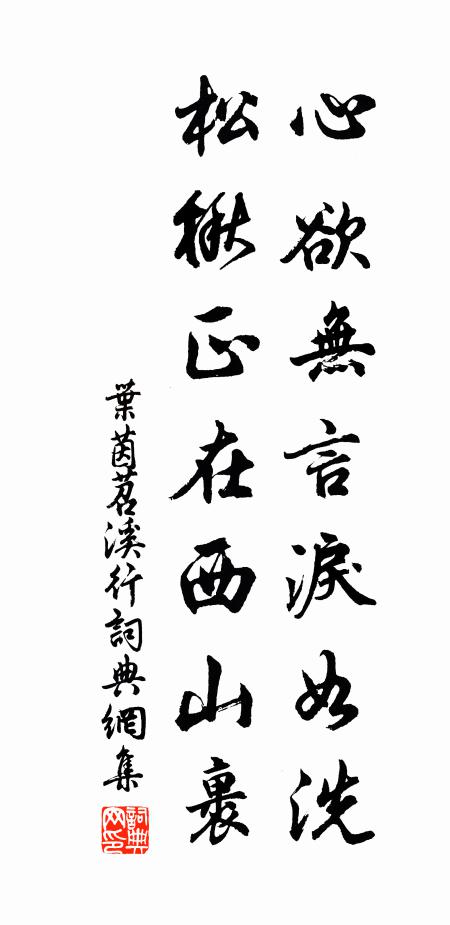 心欲無言淚如洗
松楸正在西山裏
葉茵苕溪行詞典網集
詞典网印